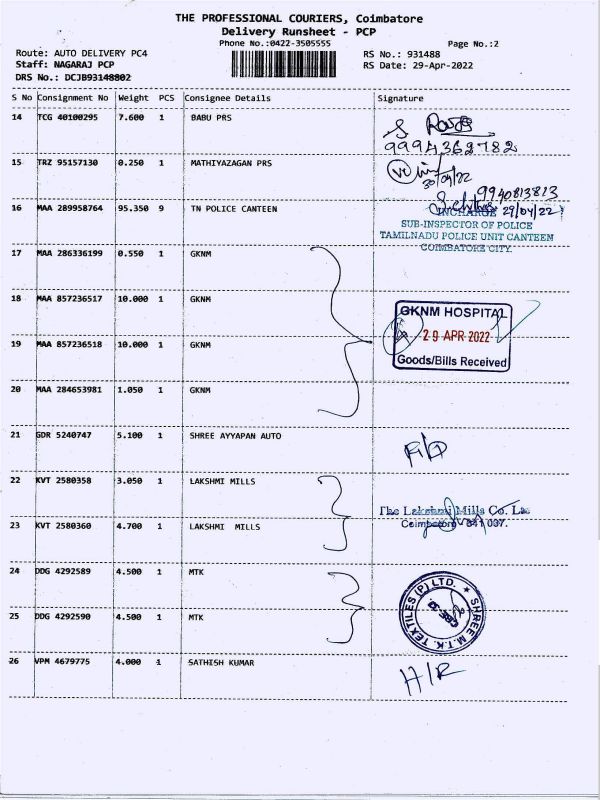 THE PROFESSIONAL COURIERS, Coimbatore
Delivery Runsheet - PCP
Phone No.:0422-3505555
Page No.:2
Route: AUTO DELIVERY PC4
RS No.: 931488
Staff: NAGARAJ PCP
RS Date: 29-Apr-2022
DRS No.: DCJB93148802
S No Consignment No Weight PCS Consignee Details Signature
14 TCG 40100295 7.600 1 BABU PRS
9994362782
15 TRZ 95157130 0.250 1 MATHIYAZAGAN PRS
30/04/22
9940813813
16 MAA 289958764 95.350 9 TN POLICE CANTEEN
INCHARGE 29/04/22
SUB-INSPECTOR OF POLICE
TAMILNADU POLICE UNIT CANTEEN
COIMBATORE CITY.
17 MAA 286336199 0.550 1 GKNM
18 MAA 857236517 10.000 1 GKNM
GKNM HOSPITAL
29 APR 2022
Goods/Bills Received
19 MAA 857236518 10.000 1 GKNM
20 MAA 284653981 1.050 1 GKNM
21 GDR 5240747 5.100 1 SHREE AYYAPAN AUTO
22 KVT 2580358 3.050 1 LAKSHMI MILLS
The Lakshmi Mills Co. Ltd
Coimbatore 641 037.
23 KVT 2580360 4.700 1 LAKSHMI MILLS
24 DDG 4292589 4.500 1 MTK
SHREE M.T.K. TEXTILES (P) LTD.
CBE-37
25 DDG 4292590 4.500 1 MTK
26 VPM 4679775 4.000 1 SATHISH KUMAR
H/R